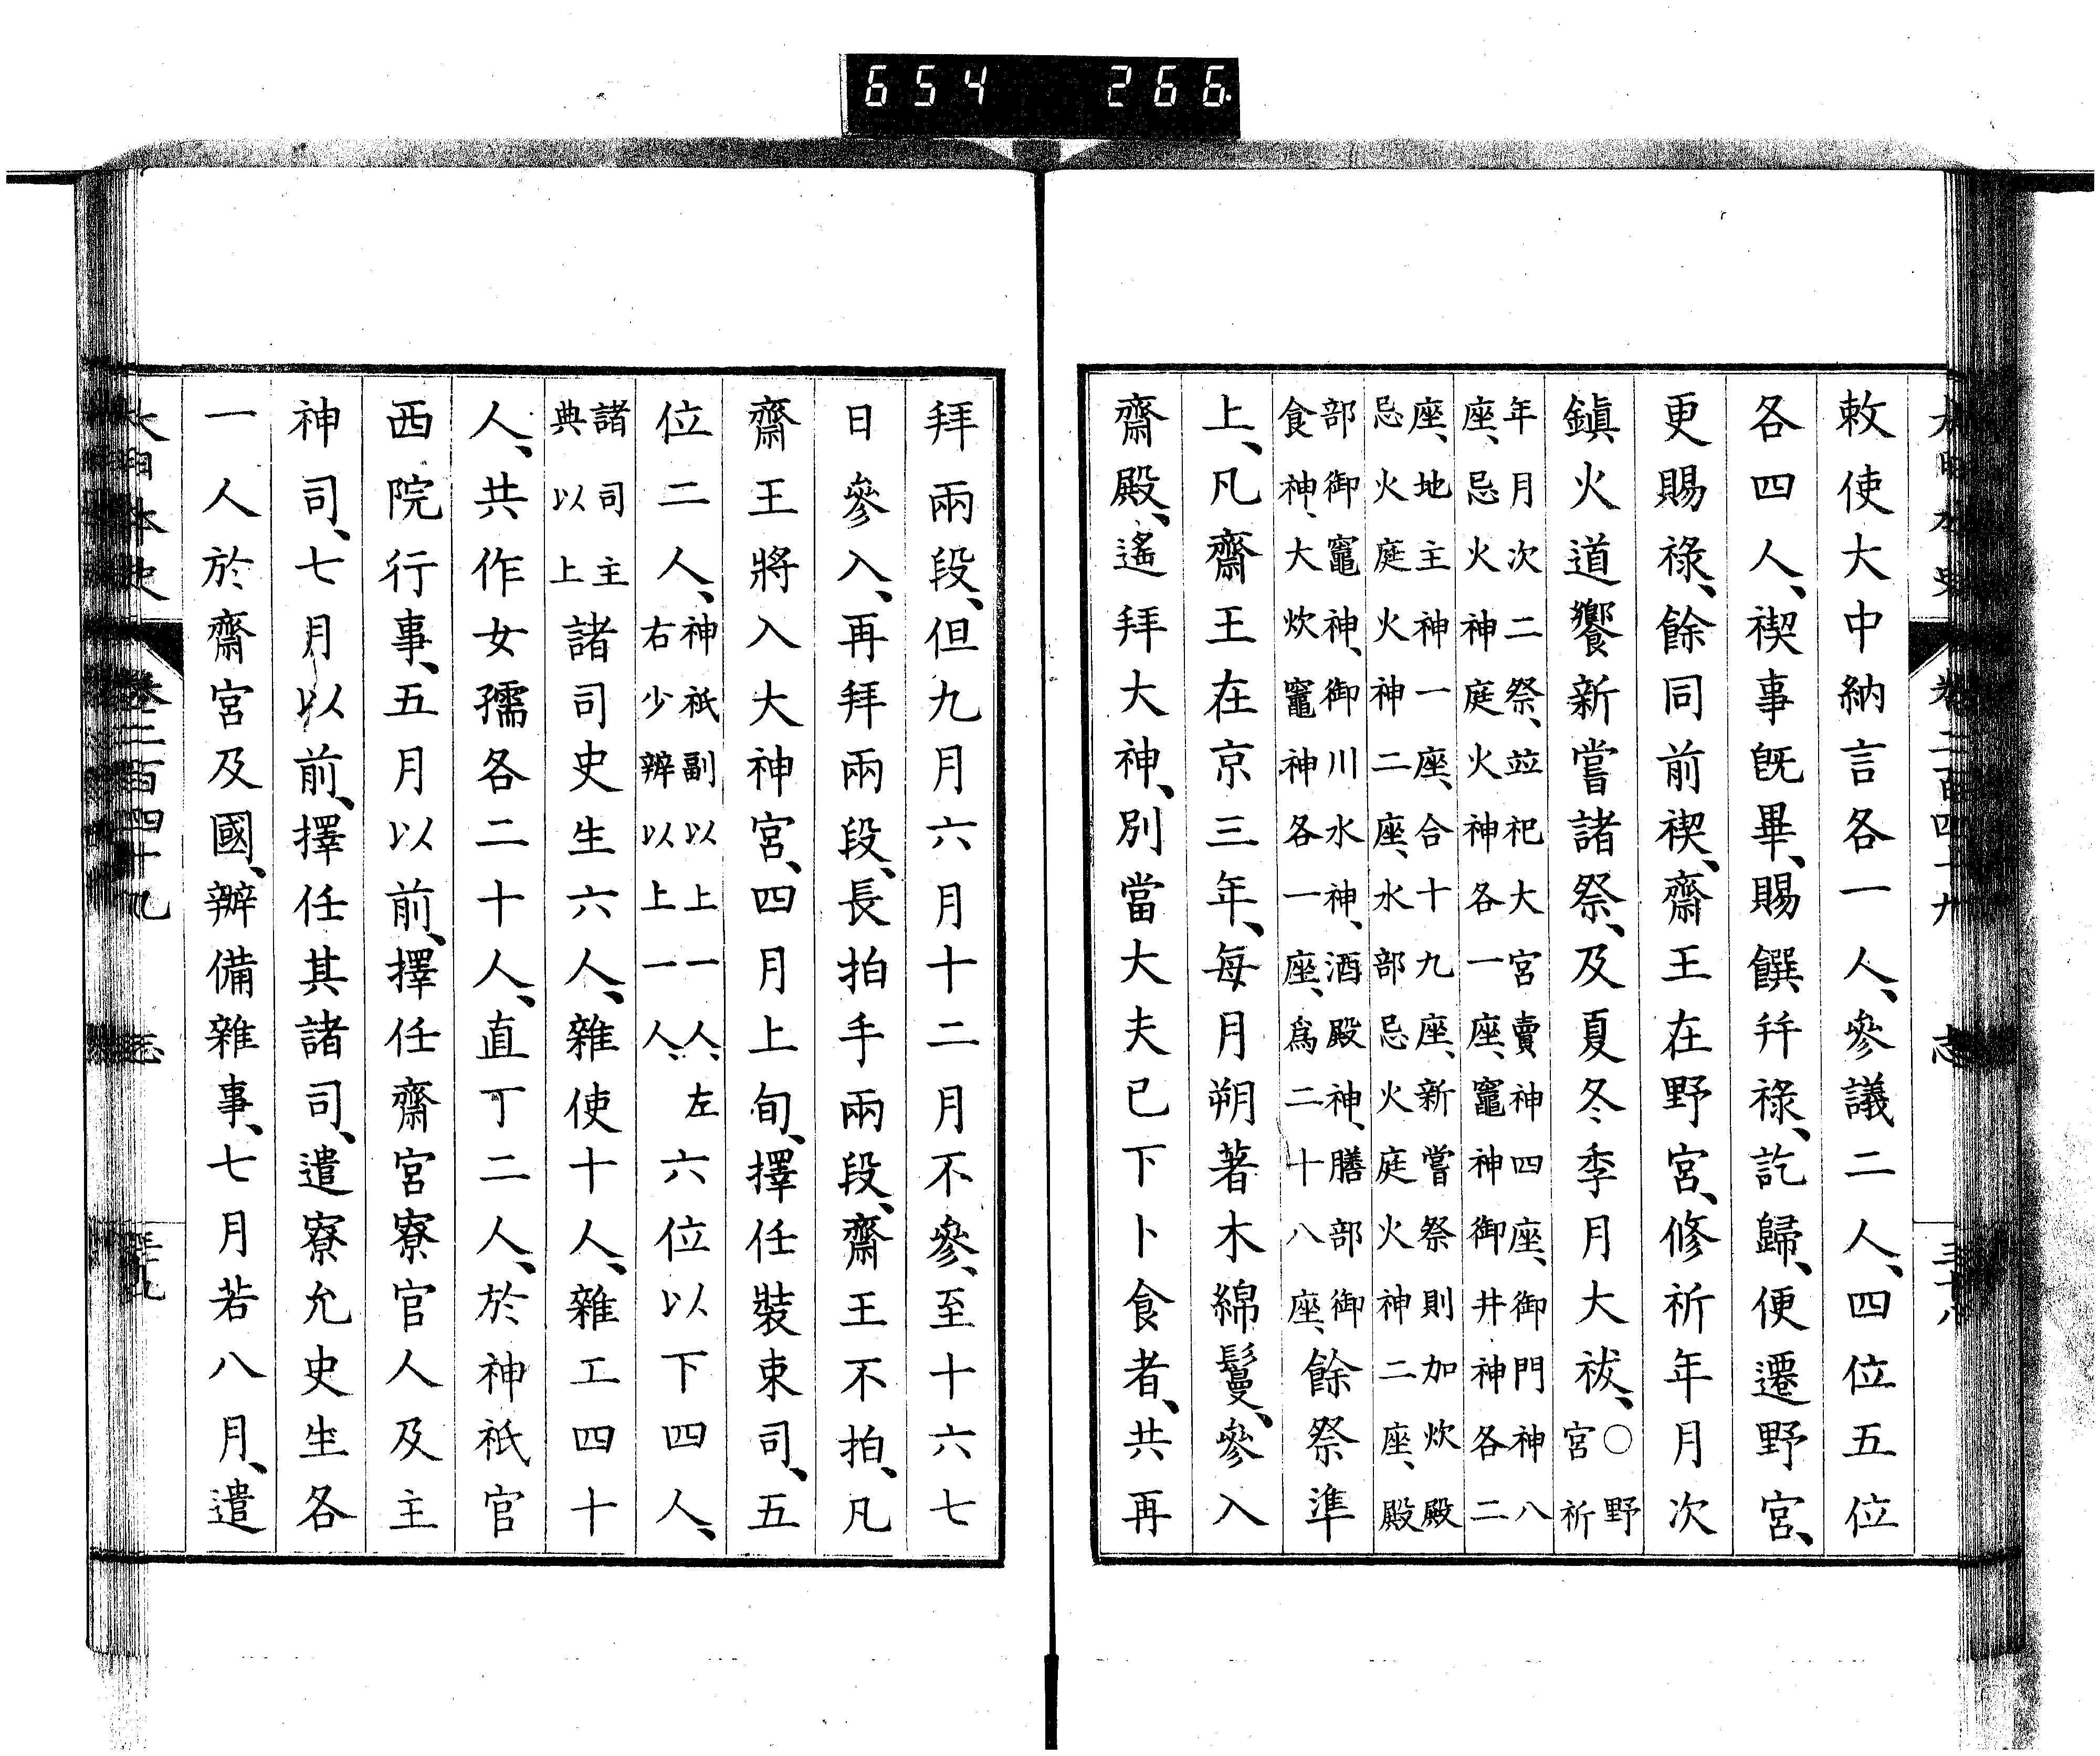 654 266
大日本史 卷二百四十九 志 三十八
敕使大中納言各一人、參議二人、四位五位
各四人、禊事既畢、賜饌幷祿、訖歸、便遷野宮、
更賜祿、餘同前禊、齋王在野宮、修祈年月次
鎭火道饗新嘗諸祭、及夏冬季月大祓、○野宮祈
年月次二祭、竝祀大宮賣神四座、御門神八
座、忌火神庭火神各一座、竈神御井神各二
座、地主神一座、合十九座、新嘗祭則加炊殿
忌火庭火神二座、水部忌火庭火神二座、殿
部御竈神、御川水神、酒殿神、膳部御
食神、大炊竈神各一座、爲二十八座、餘祭準
上、凡齋王在京三年、每月朔著木綿鬘、參入
齋殿、遙拜大神、別當大夫已下卜食者、共再
拜兩段、但九月六月十二月不參、至十六七
日參入、再拜兩段、長拍手兩段、齋王不拍、凡
齋王將入大神宮、四月上旬、擇任裝束司、五
位二人、神祇副以上一人、左右少辨以上一人、六位以下四人、
諸司主典以上諸司史生六人、雜使十人、雜工四十
人、共作女孺各二十人、直丁二人、於神祇官
西院行事、五月以前、擇任齋宮寮官人及主
神司、七月以前、擇任其諸司、遣寮允史生各
一人於齋宮及國、辦備雜事、七月若八月、遣
大日本史 卷二百四十九 志 三十九